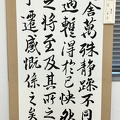 舍萬殊靜躁不同
遇蹔得於己快然
之將至及其所之
遷感慨係之矣